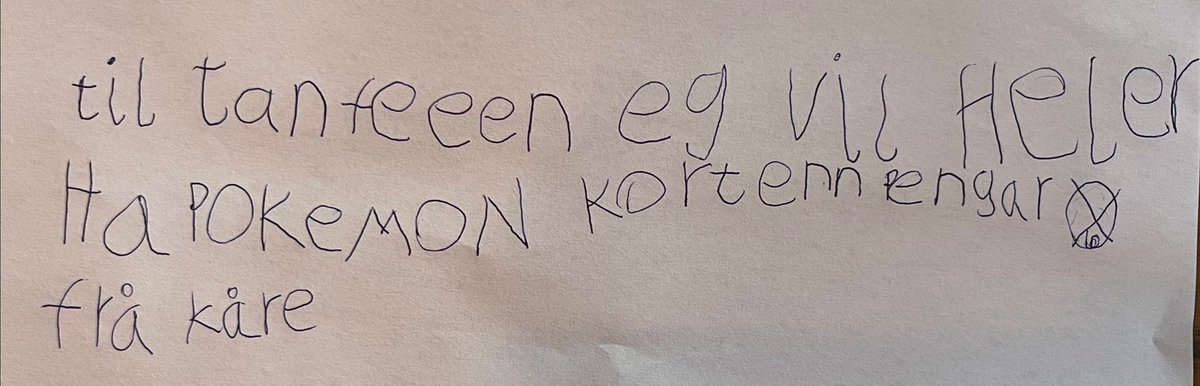 til tanfeeen eg vil Heler
Ha POKeMON kortenn pengar
frå kåre